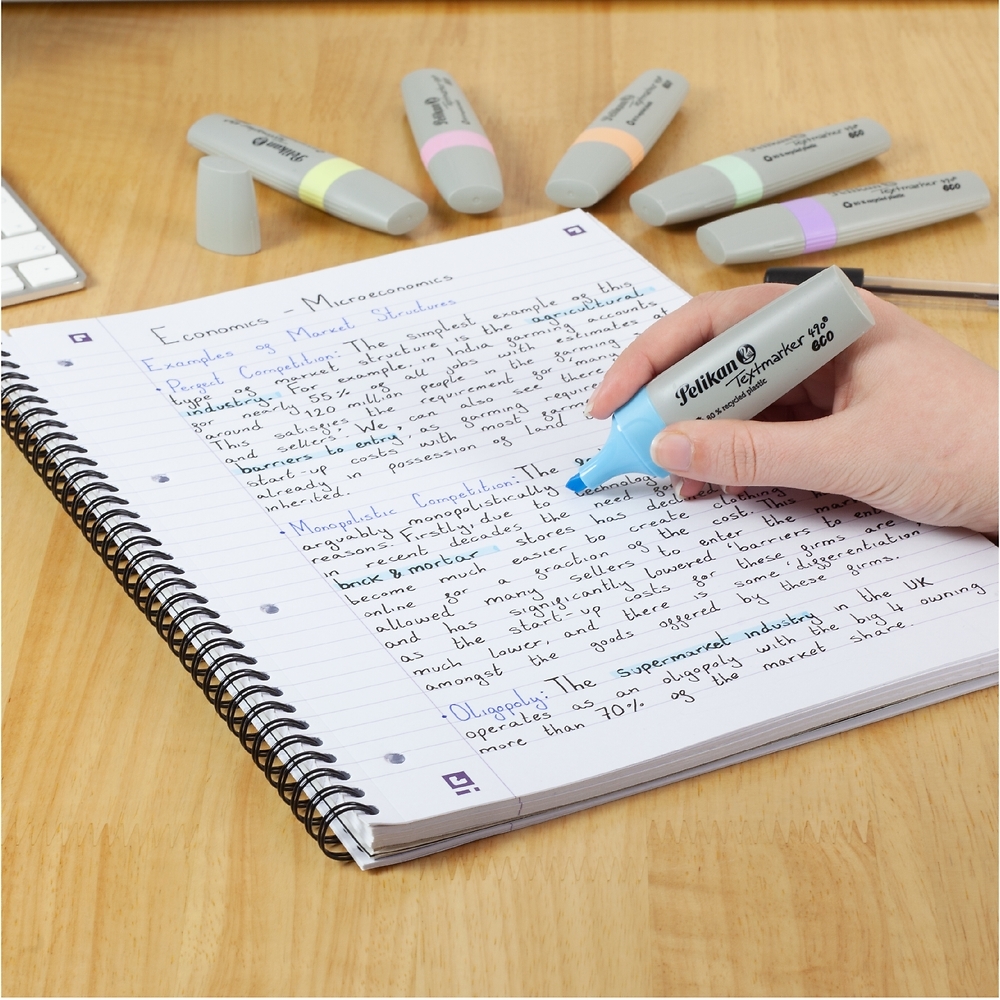 Pelikan
Pelikan
Textmarker 490
Pelikan
Textmarker 490
80% recycled plastic
eco
Pelikan
Textmarker 490
eco
80% recycled plastic
Economics - Microeconomics
Examples of Market Structures
• Perfect Competition: The simplest example of this
type of market structure is the agricultural
industry. For example, in India farming accounts
for nearly 55% of all jobs with estimates of
around 120 million people in the farming
This satisfies the requirement for many
and sellers. We can also see there
barriers to entry, as farming require
start-up costs with most farm
already in possession of land
inherited.
• Monopolistic Competition: The
arguably monopolistically
reasons. Firstly, due to technolog
in recent decades the need for
brick & mortar stores has declined
become much easier to create clothing
online for a fraction of the cost. This
allowed for many sellers to enter the mar
and has significantly lowered 'barriers to en
as the start-up costs for these firms are
much lower, and there is some 'differentiation'
amongst the goods offered by these firms.
• Oligopoly: The supermarket industry in the UK
operates as an oligopoly with the big 4 owning
more than 70% of the market share.
Pelikan
Textmarker 490®
eco
80% recycled plastic